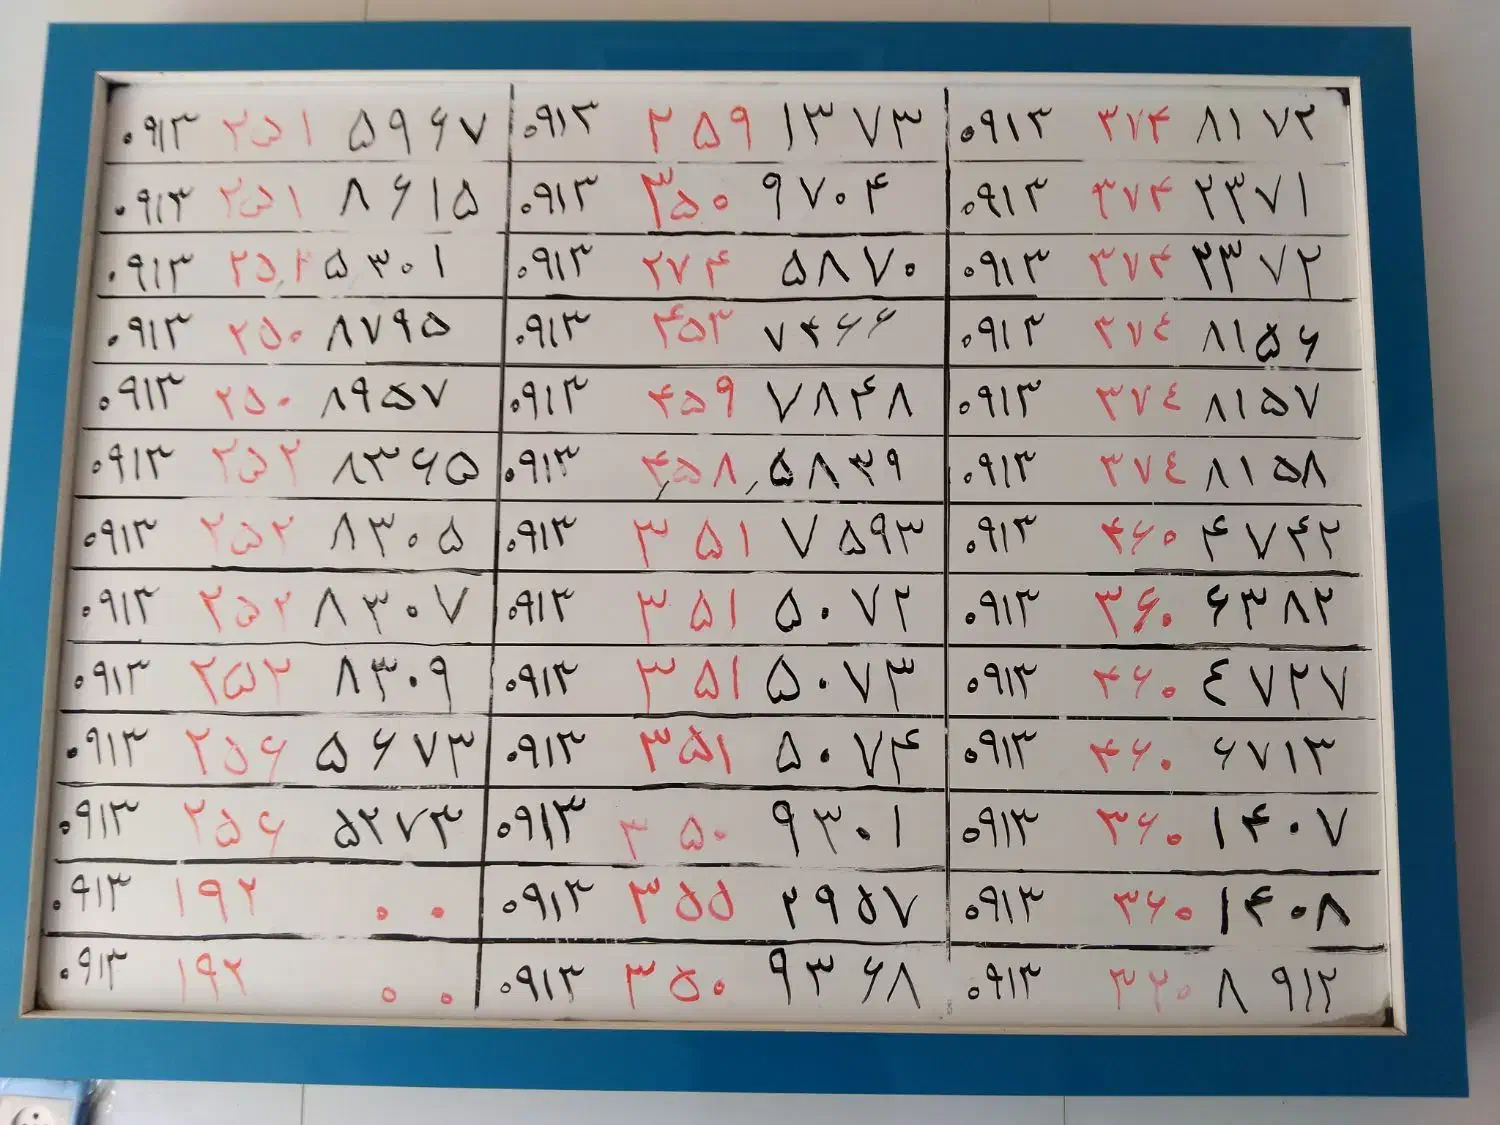 ۰۹۱۳ ۲۵۱ ۵۹۶۷ ۰۹۱۳ ۲۵۹ ۱۳۷۳ ۰۹۱۳ ۳۷۴ ۸۱۷۲
۰۹۱۳ ۲۵۱ ۸۶۱۵ ۰۹۱۳ ۳۵۰ ۹۷۰۴ ۰۹۱۳ ۳۷۴ ۲۳۷۱
۰۹۱۳ ۲۵۲ ۵۳۰۱ ۰۹۱۳ ۲۷۴ ۵۸۷۰ ۰۹۱۳ ۳۷۴ ۲۳۷۲
۰۹۱۳ ۲۵۰ ۸۷۹۵ ۰۹۱۳ ۴۵۳ ۷۴۶۶ ۰۹۱۳ ۳۷۴ ۸۱۵۶
۰۹۱۳ ۲۵۰ ۸۹۵۷ ۰۹۱۳ ۴۵۹ ۷۸۴۸ ۰۹۱۳ ۳۷۴ ۸۱۵۷
۰۹۱۳ ۲۵۲ ۸۳۶۵ ۰۹۱۳ ۴۵۸ ۵۸۳۹ ۰۹۱۳ ۳۷۴ ۸۱۵۸
۰۹۱۳ ۲۵۲ ۸۳۰۵ ۰۹۱۳ ۳۵۱ ۷۵۹۳ ۰۹۱۳ ۴۶۰ ۴۷۴۲
۰۹۱۳ ۲۵۲ ۸۳۰۷ ۰۹۱۳ ۳۵۱ ۵۰۷۲ ۰۹۱۳ ۳۶۰ ۶۳۸۲
۰۹۱۳ ۲۵۲ ۸۳۰۹ ۰۹۱۳ ۳۵۱ ۵۰۷۳ ۰۹۱۳ ۴۶۰ ۴۷۲۷
۰۹۱۳ ۲۵۶ ۵۶۷۳ ۰۹۱۳ ۳۵۱ ۵۰۷۴ ۰۹۱۳ ۴۶۰ ۶۷۱۳
۰۹۱۳ ۲۵۶ ۵۲۷۳ ۰۹۱۳ ۳۵۰ ۹۳۰۱ ۰۹۱۳ ۳۶۰ ۱۴۰۷
۰۹۱۳ ۱۹۲ ۰۰ ۰۹۱۳ ۳۵۵ ۲۹۵۷ ۰۹۱۳ ۳۶۰ ۱۴۰۸
۰۹۱۳ ۱۹۲ ۰۰ ۰۹۱۳ ۳۵۰ ۹۳۶۸ ۰۹۱۳ ۳۲۰ ۸۹۱۲